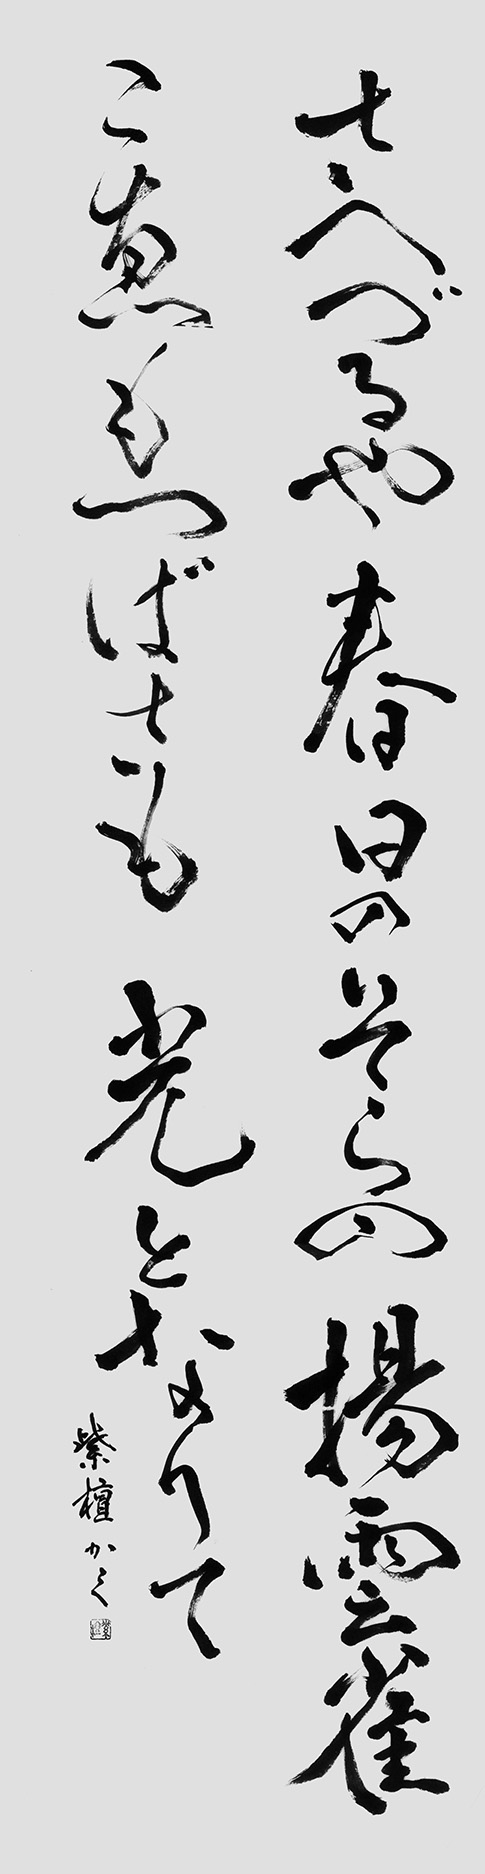 さへづるや春日のそらの揚雲雀
こゑもつばさも光となりて
紫檀かく